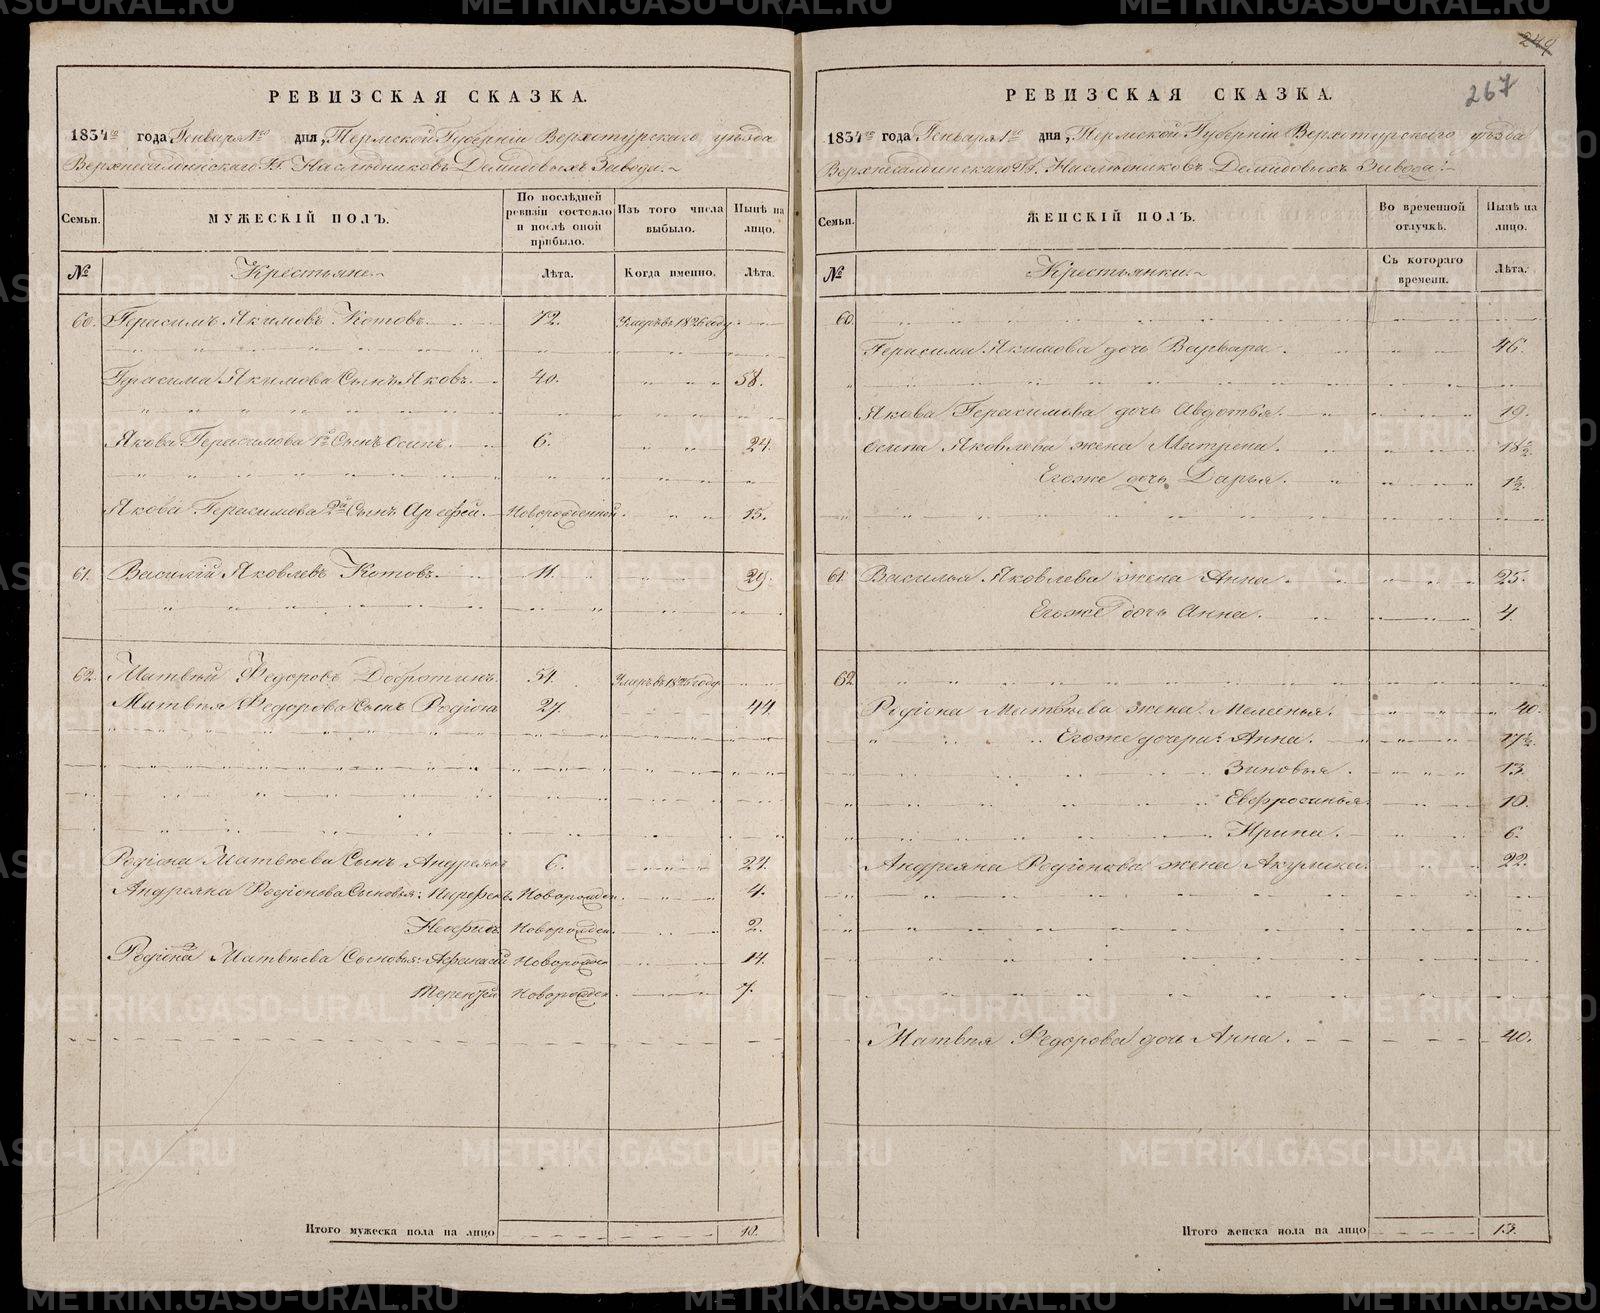 249
267
РЕВИЗСКАЯ СКАЗКА.
1834го года Генваря 1го дня, Пермской Губерніи Верхотурскаго уѣзда
Верхнесалдинскаго Гг. Наслѣдниковъ Демидовыхъ Завода.~
Семьи.
МУЖЕСКІЙ ПОЛЪ.
По послѣдней ревизіи состояло и послѣ оной прибыло.
Изъ того числа выбыло.
Нынѣ на лицо.
№
Крестьяне.~
Лѣта.
Когда именно.
Лѣта.
60. Герасимъ Якимовъ Котовъ. 72. Умеръ въ 1826 году.
Герасима Якимова Сынъ Яковъ. 40. 58.
Якова Герасимова 1й Сынъ Осипъ. 6. 24.
Якова Герасимова 2й Сынъ Арефей. Новорожденной. 15.
61. Василій Яковлевъ Котовъ. 11. 29.
62. Матвѣй Федоровъ Добротинъ. 54. Умеръ въ 1825 году
Матвѣя Федорова Сынъ Родіонъ 27. 44.
Родіона Матвѣева Сынъ Андреянъ 6. 24.
Андреяна Родіонова Сыновья: Порфенъ. Новорожден. 4.
Новорожден. 2.
Родіона Матвѣева Сыновья: Афанасій Новорожден 14.
Терентей Новорожден. 7.
Итого мужеска пола на лицо 10.
РЕВИЗСКАЯ СКАЗКА.
1834го года Генваря 1го дня, Пермской Губерніи Верхотурскаго уѣзда
Верхнесалдинскаго Гг. Наслѣдниковъ Демидовыхъ Завода.~
Семьи.
ЖЕНСКІЙ ПОЛЪ.
Во временной отлучкѣ.
Нынѣ на лицо.
№
Крестьянки.~
Съ котораго времени.
Лѣта.
60.
Герасима Якимова дочь Варвара. 46.
Якова Герасимова дочь Авдотья. 19.
Осипа Яковлева жена Матрена. 18½
Егоже дочь Дарья. 1½
61. Василья Яковлева жена Анна. 25.
Егоже дочь Анна. 4.
62.
Родіона Матвѣева жена Меланья. 40.
Егоже дочери: Анна. 17½
Зиновья. 13.
Евфросинья. 10.
Ирина. 6.
Андреяна Родіонова жена Акулина. 22.
Матвѣя Федорова дочь Анна. 40.
Итого женска пола на лицо 13.
METRIKI.GASO-URAL.RU